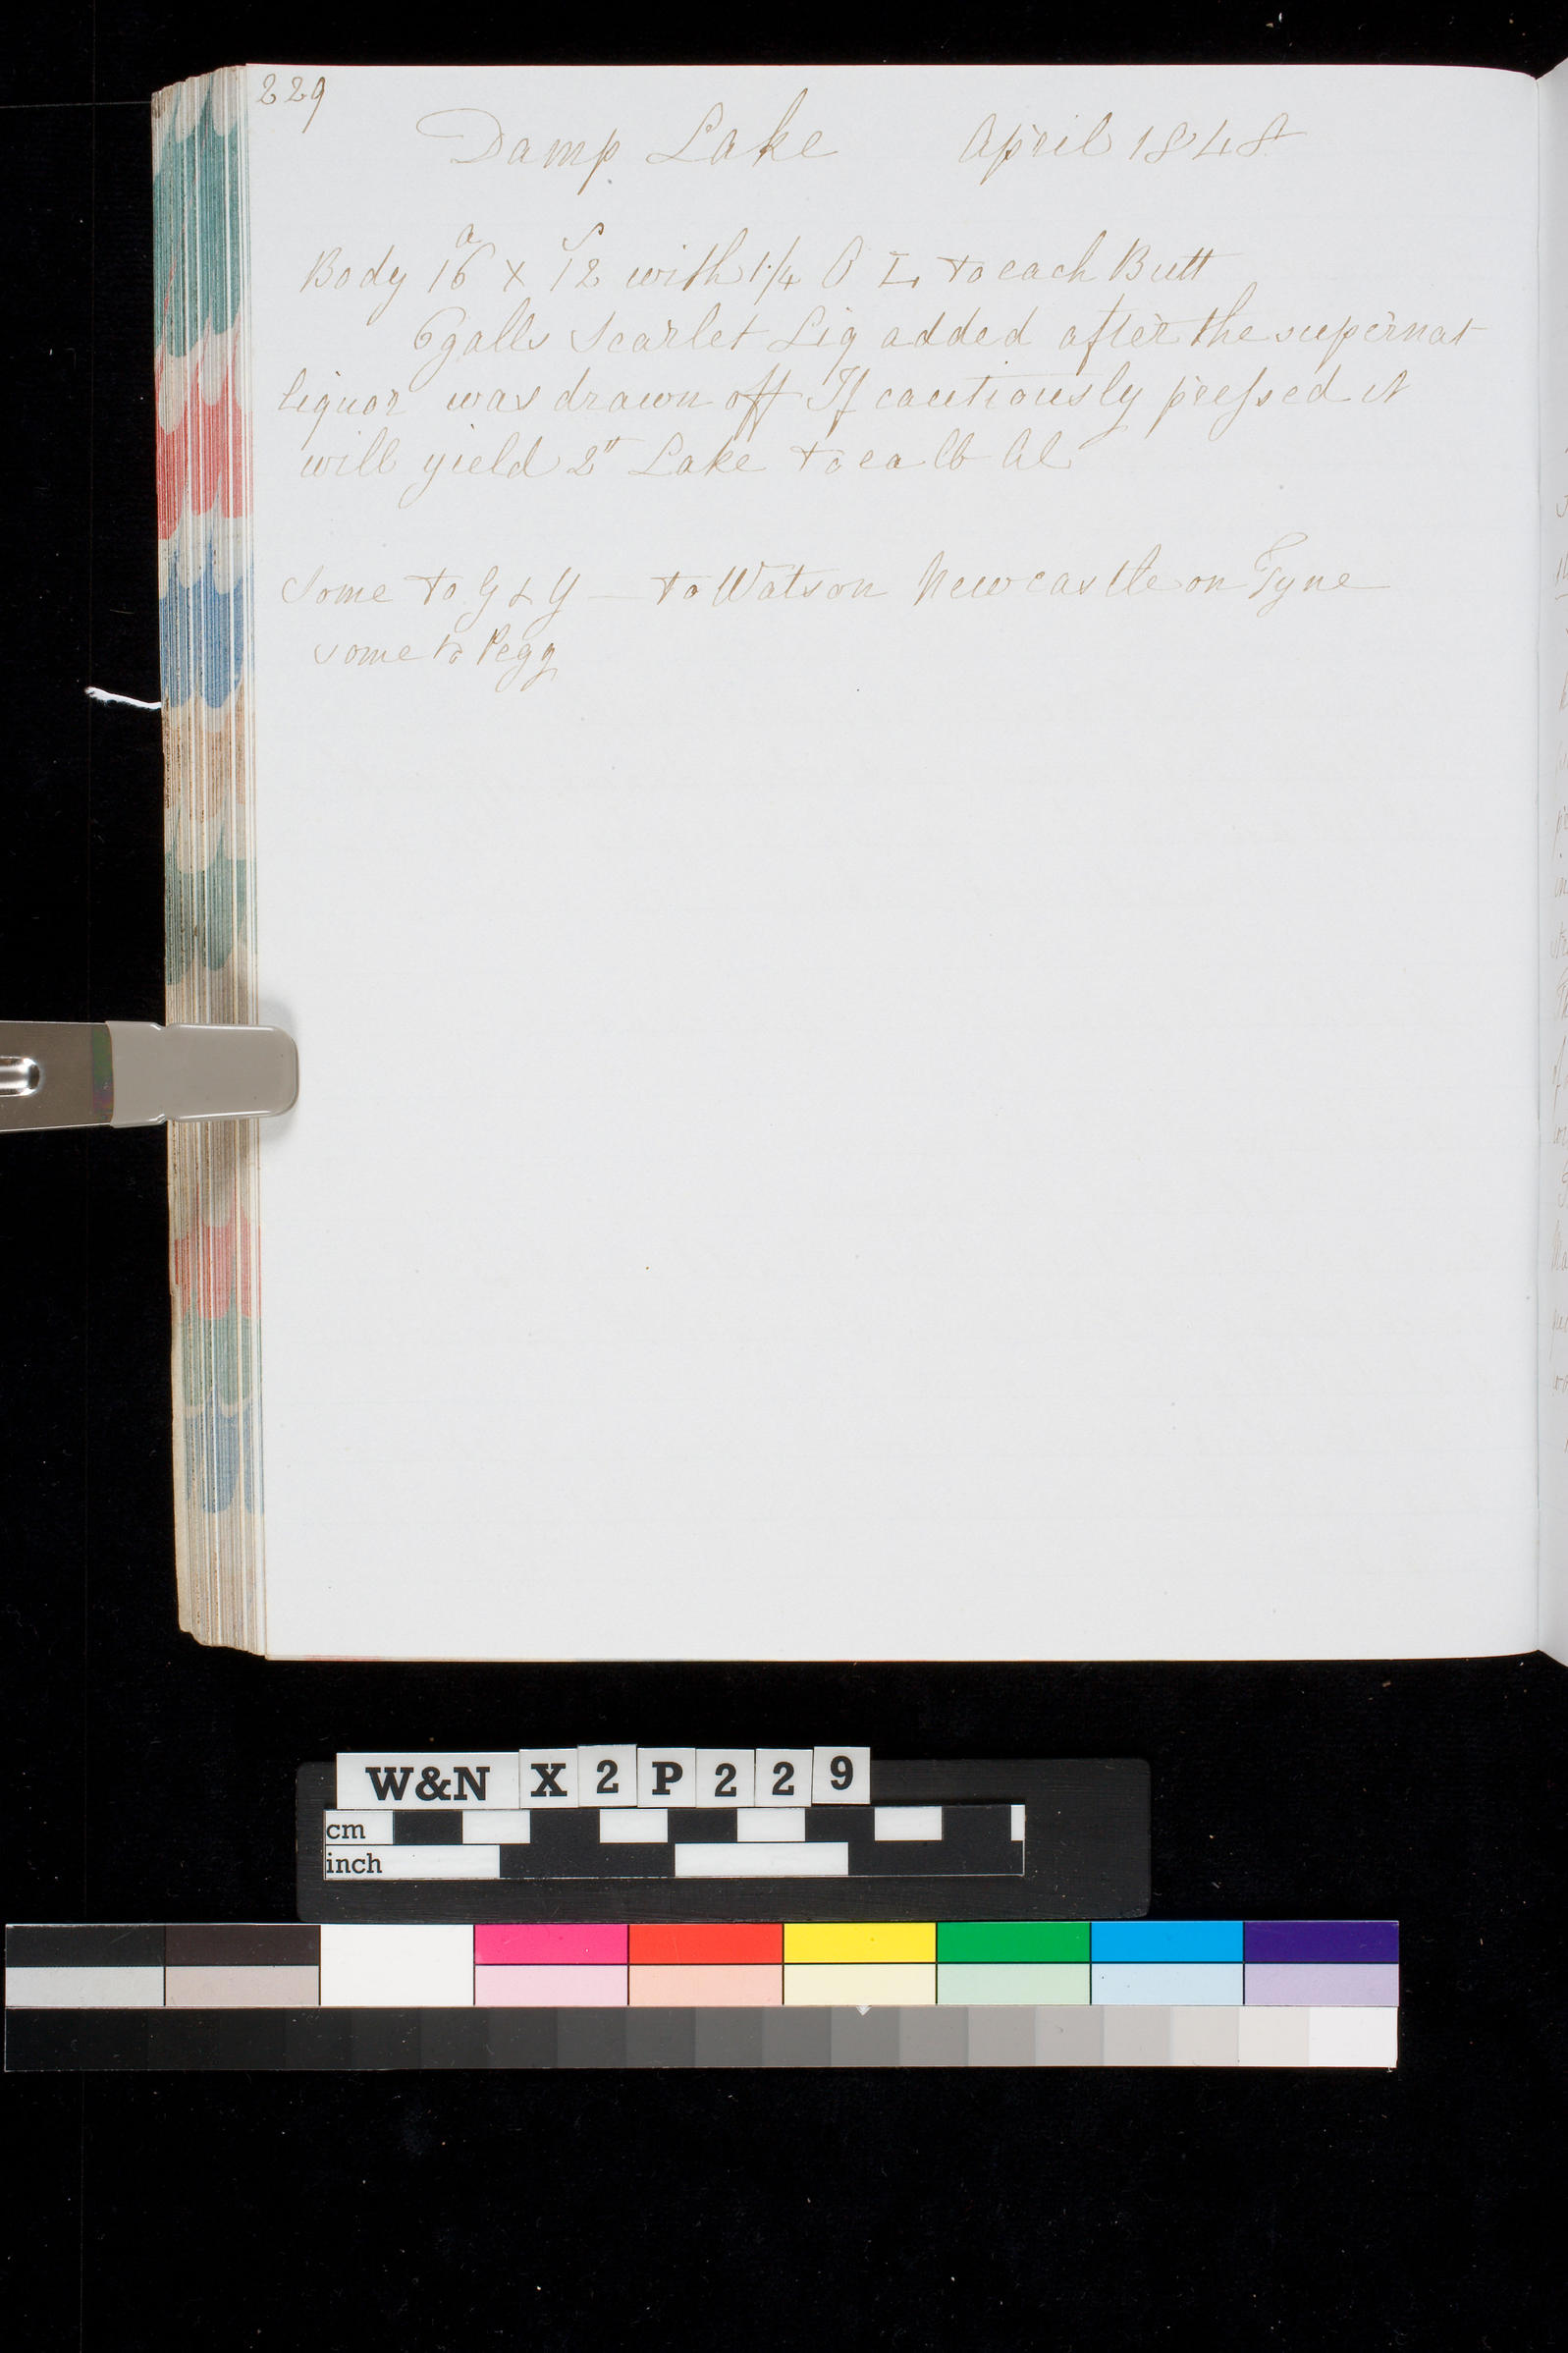 229
Damp Lake April 1848
a S
Body 16 x 12 with 1/4 O L to each Butt
6 galls Scarlet Liq added after the supernat
liquor was drawn off If cautiously pressed it
will yield 2" Lake to ea lb Al
Some to G & Y — to Watson Newcastle on Tyne
some to Pegg
W&N X2P229
cm
inch